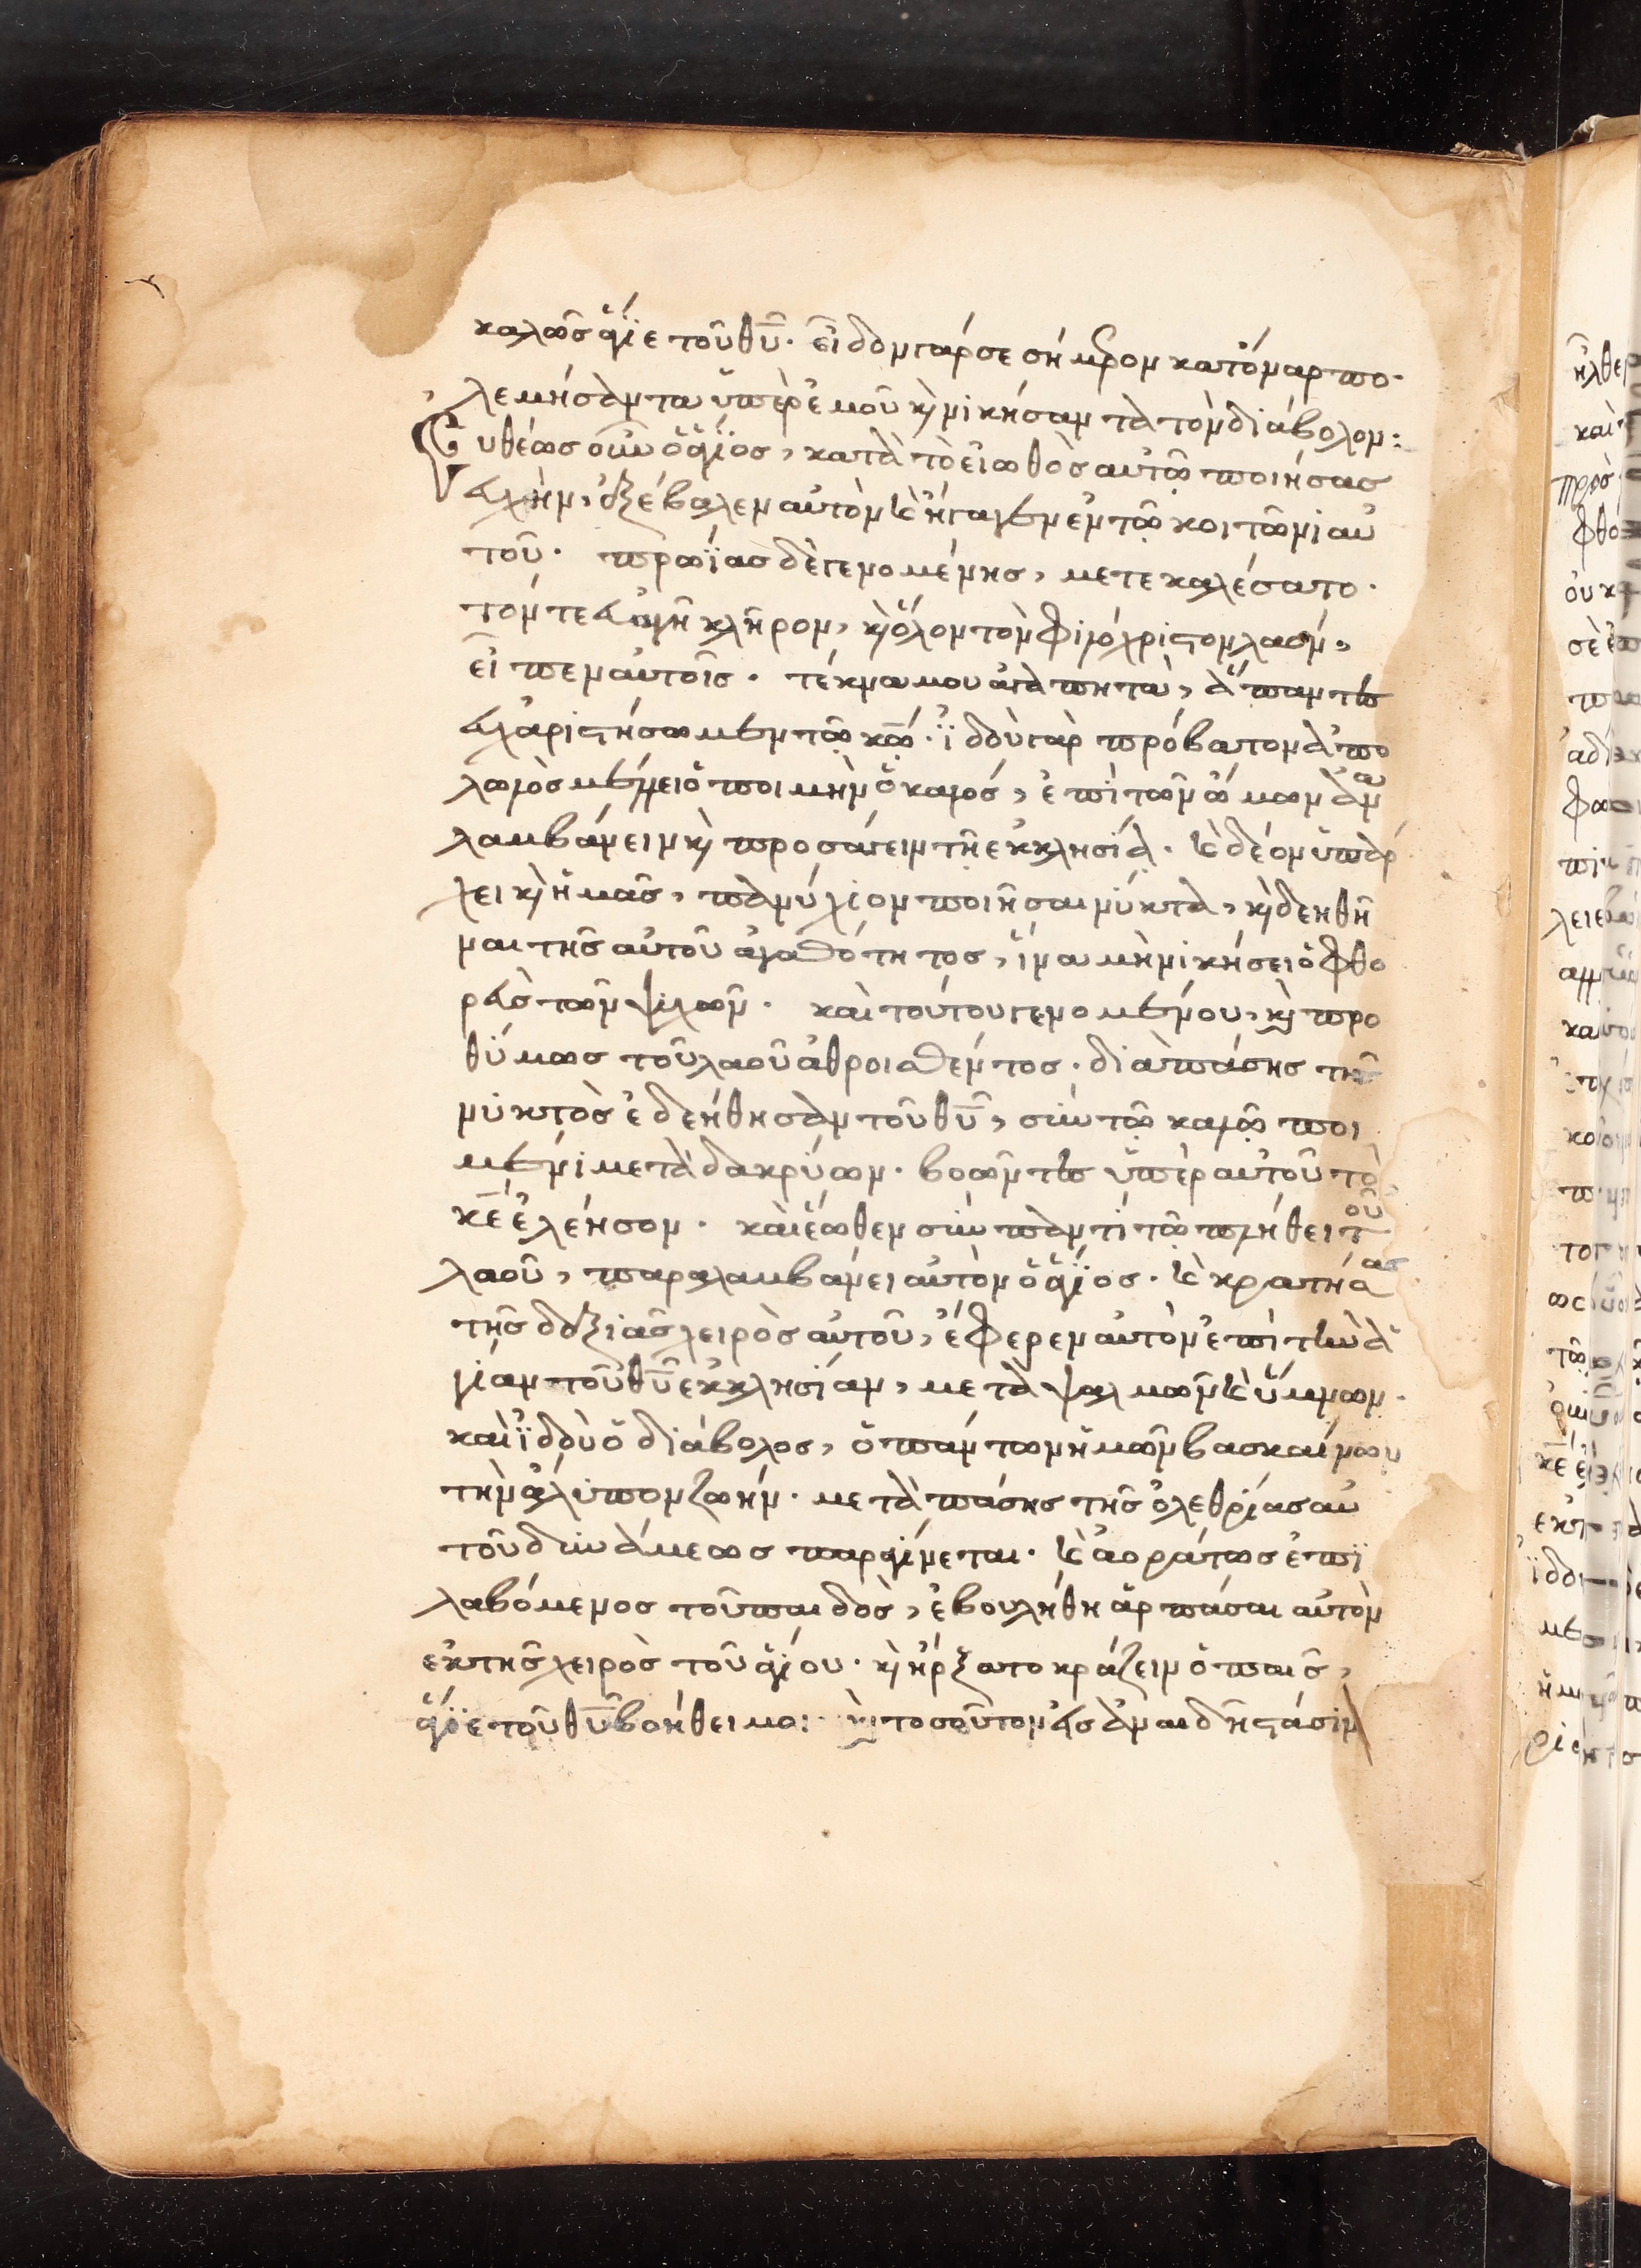 καλῶς ἅγϊε τοῦ θῦ· εἶδον γάρ σε σήμερον κατόναρ πο·
λεμήσαντα ὑπὲρ ἐμοῦ κ̀ νικήσαντα τὸν διάβολον:
Εὐθέως οὖν ὁ ἅγϊος, κατὰ τὸ εἰωθὸς αὐτῶ ποιήσας
εὐχὴν, ἐξέβαλεν αὐτὸν κ̀ ἤγαγεν ἐν τῶ κοιτῶνι αὐ
τοῦ· πρωΐας δὲ γενομένης, μετεκαλέσατο·
τόν τε εὐαγῆ κλῆρον, κ̀ ὅλον τὸν φιλόχριστον λαόν,
εἶπεν αὐτοῖς· τέκνα μου ἀγαπητὰ, ἅπαντες
εὐχαριστήσωμεν τῶ κῶ· ἰδοὺ γὰρ πρόβατον ἀπο
λωλὸς μένει ὁ ποιμὴν ὁ καλός, ἐπὶ τῶν ὤμων ἀνα
λαμβάνειν κ̀ προσάγειν τῆ ἐκκλησία· κ̀ δέον ὑπάρ
χει κ̀ ἡμᾶς, παννύχιον ποιῆσαι νύκτα, κ̀ δεηθῆ
ναι τῆς αὐτοῦ ἀγαθότητος, ἵνα μὴ νικήσει ὁ φθο
ρεὺς τῶν ψυχῶν· καὶ τούτου γενομένου, κ̀ προ
θύμως τοῦ λαοῦ ἀθροισθέντος· διὰ πάσης τῆς
νυκτὸς ἐδεήθησαν τοῦ θῦ, σὺν τῶ καλῶ ποι
μένι μετὰ δακρύων· βοῶντες ὑπὲρ αὐτοῦ τὸ
κε ἐλέησον· καὶ ἕωθεν σὺν παντὶ τῶ πλήθει τοῦ
λαοῦ, παραλαμβάνει αὐτὸν ὁ ἅγϊος· κ̀ κρατήσας
τῆς δεξιᾶς χειρὸς αὐτοῦ, ἔφερεν αὐτὸν ἐπὶ τὴν ἁ
γίαν τοῦ θῦ ἐκκλησίαν, μετὰ ψαλμῶν κ̀ ὕμνων·
καὶ ἰδοὺ ὁ διάβολος, ὁ πάντων ἡμῶν βασκαίνων
τὴν ἄλυπον ζωήν· μετὰ πάσης τῆς ὀλεθρίας αὐ
τοῦ δυνάμεως παραγίνεται· κ̀ ἀοράτως ἐπι
λαβόμενος τοῦ παιδὸς, ἐβουλήθη ἁρπάσαι αὐτὸν
ἐκ τῆς χειρὸς τοῦ ἁγίου· κ̀ ἤρξατο κράζειν ὁ παῖς,
ἅγϊε τοῦ θῦ βοήθει μοι· κ̀ τοσοῦτον εἰς ἀναιδῆ στάσιν